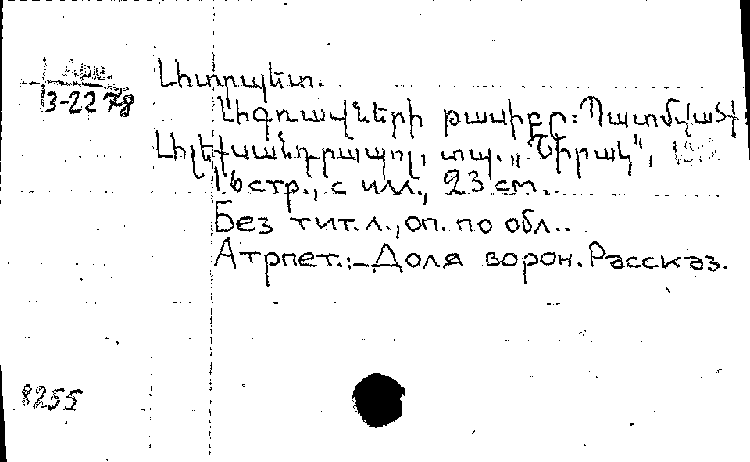 Арм.
3-22 78
Ատրպետ.
Ագռավների բաժինը: Պատմվածք
Ալեքսանդրապոլ, տպ. „Շիրակ",
16 стр., с илл., 23 см.
Без тит. л., оп. по обл..
Атрпет.:-Доля ворон. Рассказ.
8255